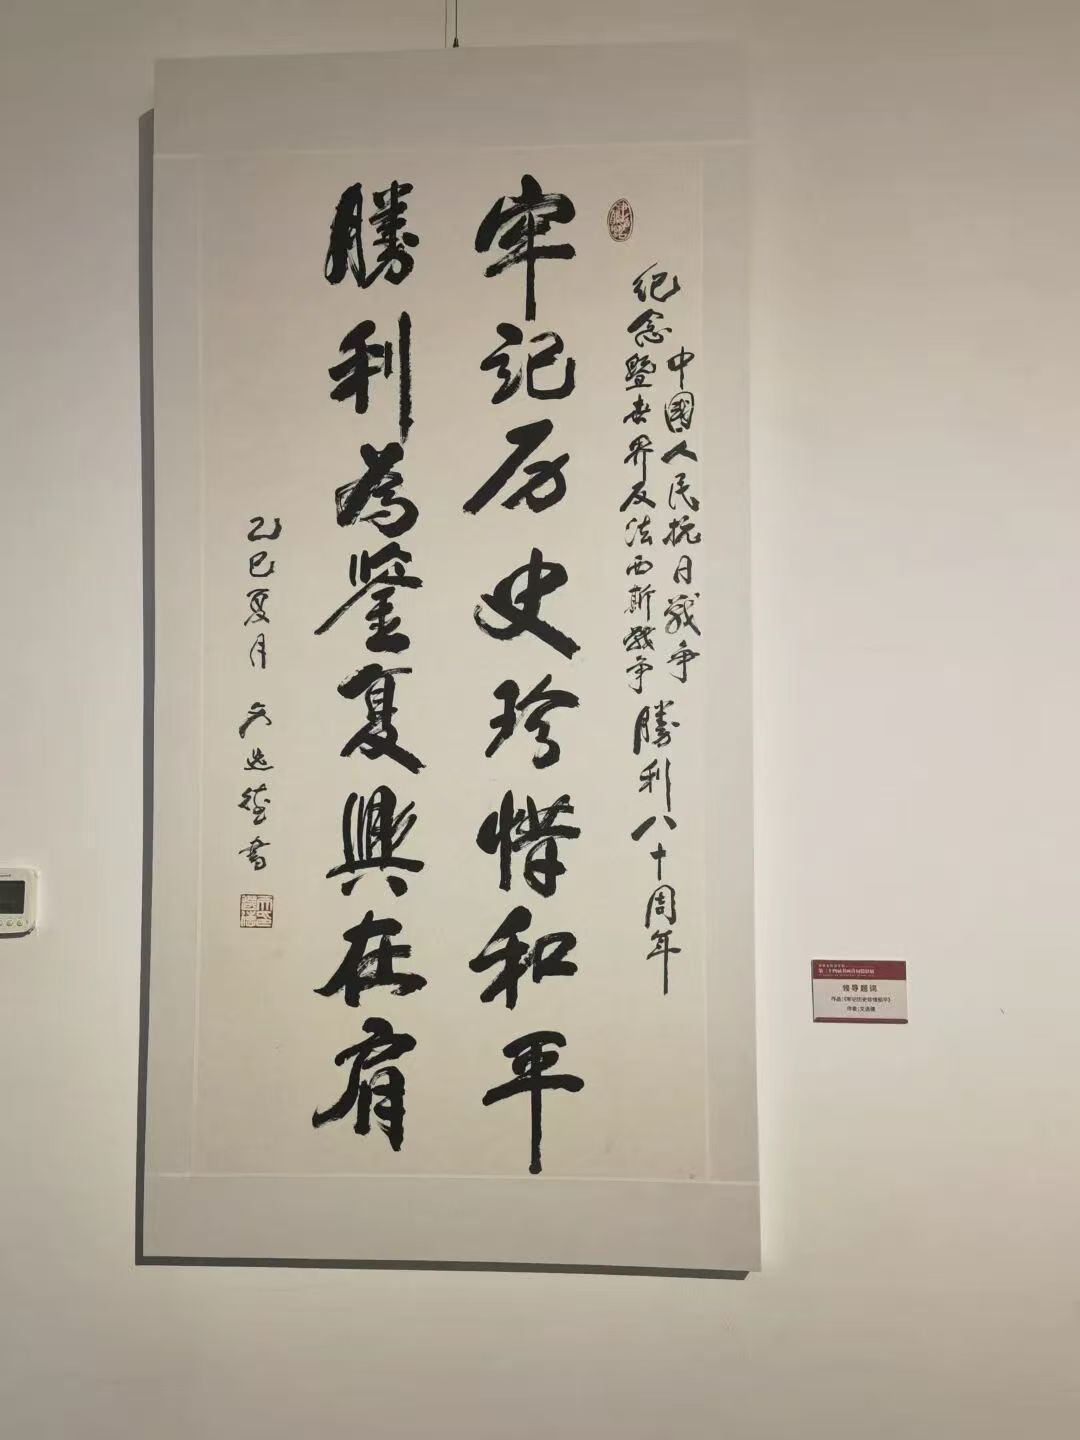 中國人民抗日戰争
纪念暨世界反法西斯戰争勝利八十周年
牢记历史珍惜和平
勝利為鉴复興在肩
乙巳夏月 文选德書
领导题词
作品:《牢记历史珍惜和平》
作者:文选德